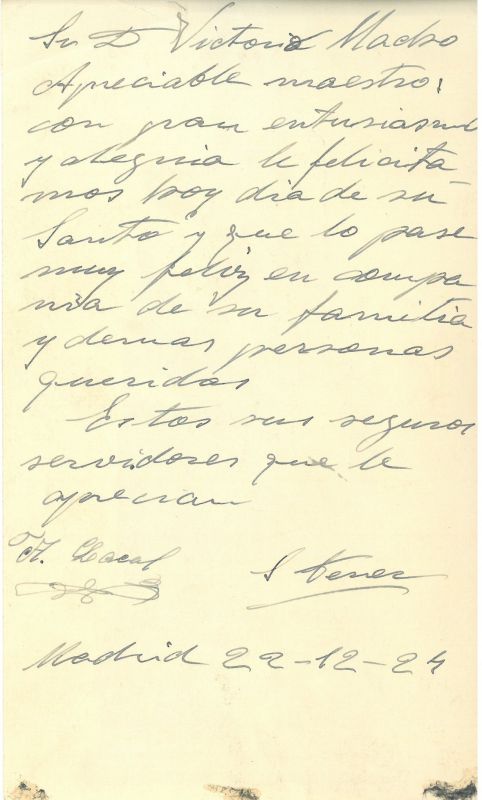 Sr D Victoria Macho
Apreciable maestro:
con gran entusiasmo
y alegria le felicita
mos hoy dia de su
Santo y que lo pase
muy feliz en compa
nia de su familia
y demas personas
queridas
Estos sus seguros
servidores que le
aprecian
Madrid 22-12-24